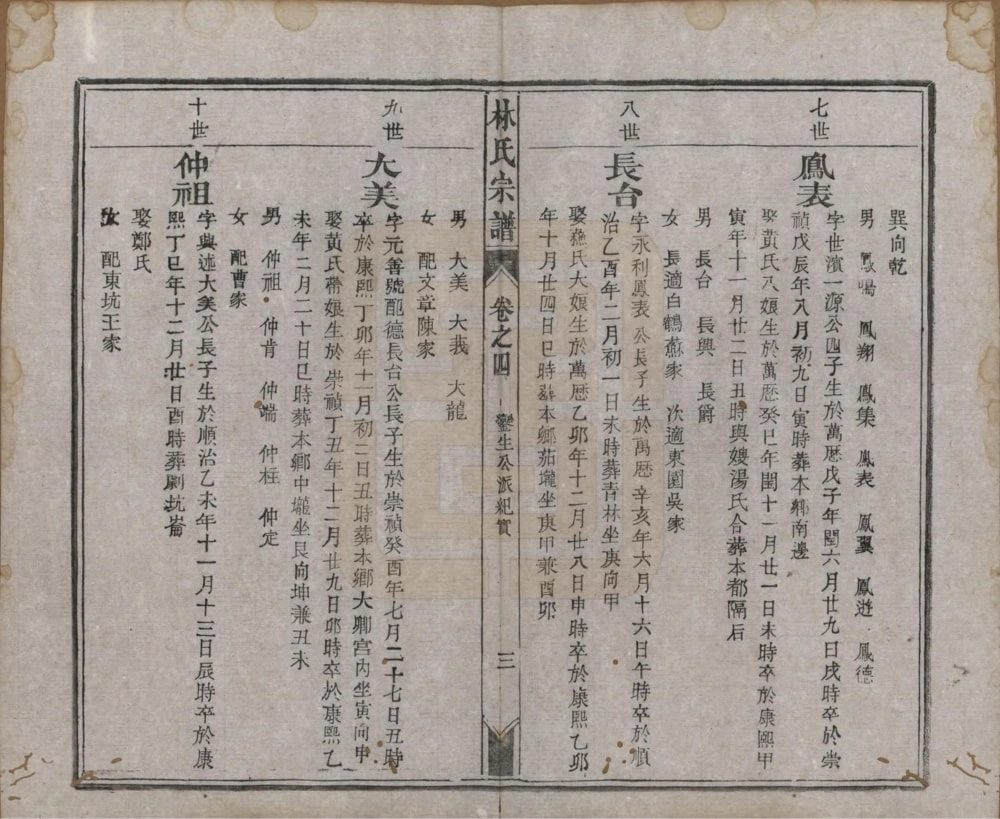 巽向乾
男　鳳鳴　鳳翔　鳳集　鳳表　鳳翼　鳳遊　鳳德
七世
鳳表
字世濱一源公四子生於萬歷戊子年閏六月廿九日戌時卒於崇
禎戊辰年八月初九日寅時葬本鄉南邊
娶黄氏八娘生於萬歷癸巳年閏十一月廿一日未時卒於康熙甲
寅年十一月廿二日丑時與嫂湯氏合葬本都隔后
男　長台　長興　長爵
女　長適白鶴蘇家　次適東園吳家
八世
長台
字永利鳳表公長子生於萬歷辛亥年六月十六日午時卒於順
治乙酉年二月初一日未時葬青林坐庚向甲
娶氏大娘生於萬歷乙卯年十二月廿八日申時卒於康熙乙卯
年十月廿四日巳時葬本鄉茄壠坐庚甲兼酉卯
林氏宗譜
卷之四
生公派紀實
三
男　大美　大我　大龍
女　配文章陳家
九世
大美
字元善號配德長台公長子生於崇禎癸酉年七月二十七日丑時
卒於康熙丁卯年十一月初二日丑時葬本鄉大鄉宮內坐寅向申
娶黃氏帶娘生於崇禎丁丑年十二月廿九日卯時卒於康熙乙
未年二月二十日巳時葬本鄉中壠坐艮向坤兼丑未
男　仲祖　仲肯　仲喘　仲柱　仲定
女　配曹家
十世
仲祖
字興述大美公長子生於順治乙未年十一月十三日辰時卒於康
熙丁巳年十二月廿日酉時葬坑崙
娶鄭氏
女　配東坑王家